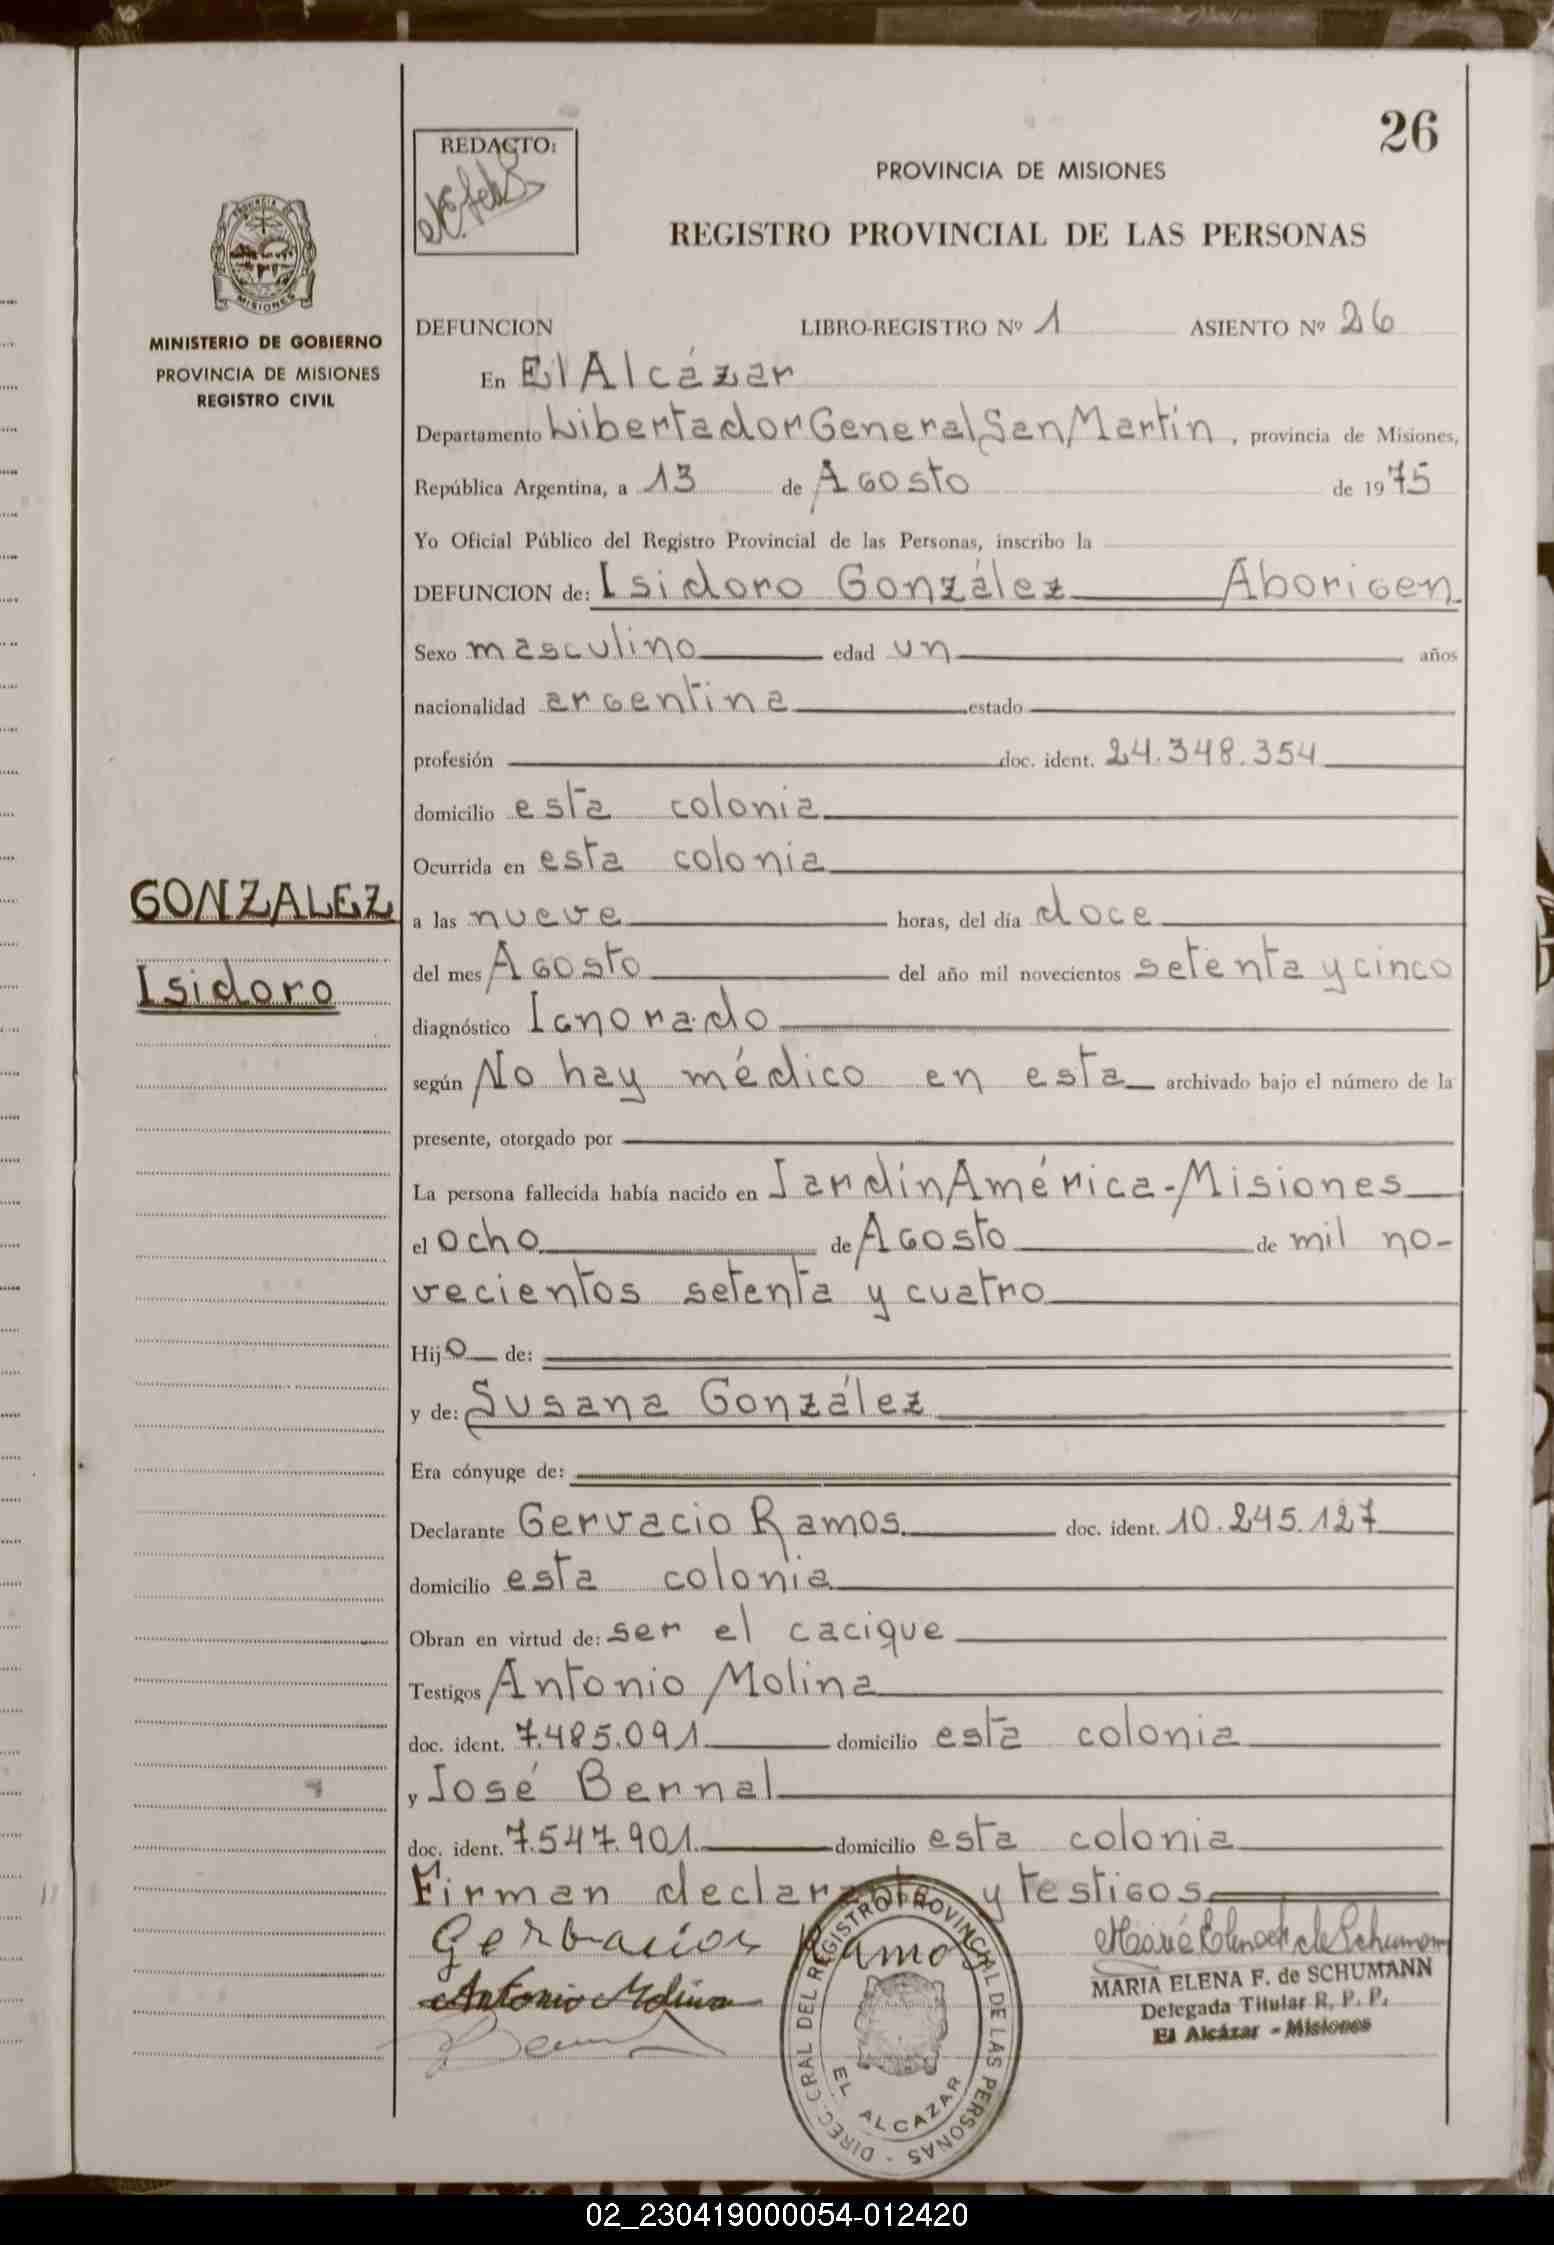 26
REDACTO:
PROVINCIA DE MISIONES
REGISTRO PROVINCIAL DE LAS PERSONAS
MINISTERIO DE GOBIERNO
PROVINCIA DE MISIONES
REGISTRO CIVIL
DEFUNCION LIBRO-REGISTRO Nº 1 ASIENTO Nº 26
En El Alcázar
Departamento Libertador General San Martín, provincia de Misiones,
República Argentina, a 13 de Agosto de 1975
Yo Oficial Público del Registro Provincial de las Personas, inscribo la
DEFUNCION de: Isidoro González Aborigen
Sexo masculino edad un años
nacionalidad argentina estado
profesión doc. ident. 24.348.354
domicilio esta colonia
Ocurrida en esta colonia
GONZALEZ
Isidoro
a las nueve horas, del día doce
del mes Agosto del año mil novecientos setenta y cinco
diagnóstico Ignorado
según No hay médico en esta archivado bajo el número de la
presente, otorgado por
La persona fallecida había nacido en Jardín América-Misiones
el ocho de Agosto de mil no-
vecientos setenta y cuatro
Hijo de:
y de: Susana González
Era cónyuge de:
Declarante Gervacio Ramos doc. ident. 10.245.127
domicilio esta colonia
Obran en virtud de: ser el cacique
Testigos Antonio Molina
doc. ident. 7.485.091 domicilio esta colonia
y José Bernal
doc. ident. 7.547.901 domicilio esta colonia
Firman declarante y testigos
Gerbacior Ramos
Antonio Molina
MARIA ELENA F. de SCHUMANN
Delegada Titular R. P. P.
El Alcázar - Misiones
DIREC. GRAL DEL REGISTRO PROVINCIAL DE LAS PERSONAS -
EL ALCAZAR
02_230419000054-012420